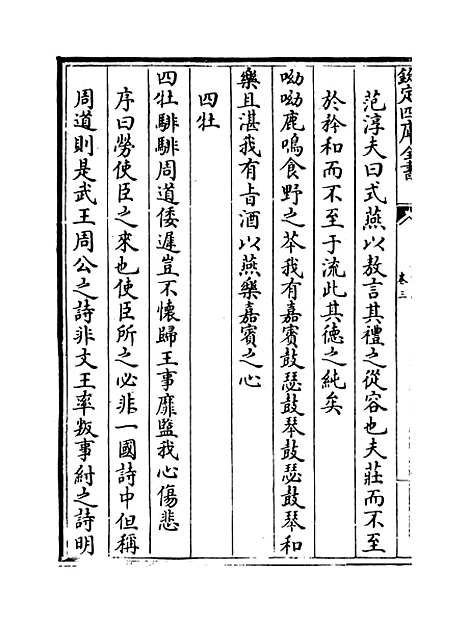 欽定四庫全書
卷三
范淳夫曰式燕以敖言其禮之從容也夫莊而不至
於矜和而不至于流此其德之純矣
呦呦鹿鳴食野之芩我有嘉賓鼓瑟鼓琴鼓瑟鼓琴和
樂且湛我有㫖酒以燕樂嘉賓之心
四牡
四牡騑騑周道倭遲豈不懷歸王事靡盬我心傷悲
序曰勞使臣之來也使臣所之必非一國詩中但稱
周道則是武王周公之詩非文王率叛事紂之詩明